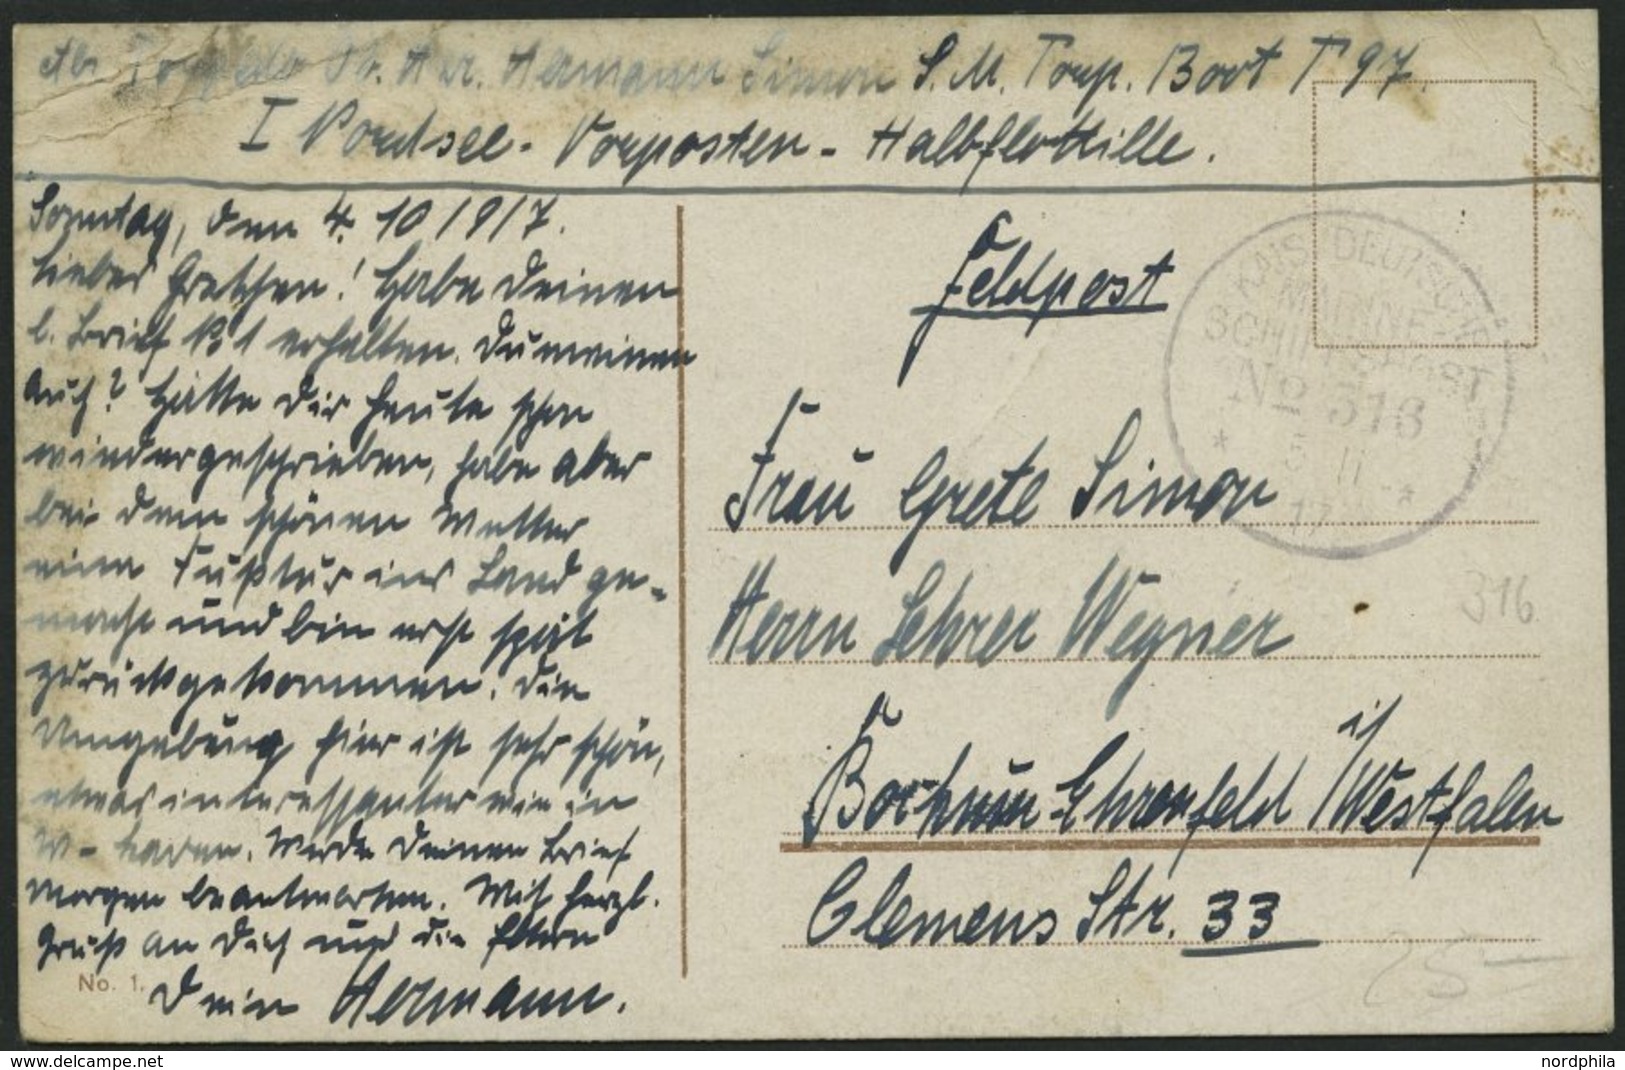 Hermann Simon S. M. Torp. Boot T 97.
I Nordsee-Vorposten-Halbflottille.
Sonntag, den 4. 10 1917.
Liebes Gretchen! Habe Deinen
l. Brief № 1 erhalten. Du meinen
auch? Hätte Dir heute schon
wiedergeschrieben, habe aber
bei dem schönen Wetter
eine Fußtur ins Land ge-
macht und bin erst spät
zurückgekommen. Die
Umgebung hier ist sehr schön,
etwas interessanter wie in
W-haven. Werde Deinen Brief
morgen beantworten. Mit herzl.
Gruß an Dich und die Eltern
Dein Hermann.
No. 1.
Feldpost
KAIS. DEUTSCHE
MARINE-
SCHIFFSPOST
No 316
* 5 11 *
17
Frau Grete Simon
Herrn Lehrer Wegner
316
Bochum Ehrenfeld i/Westfalen
Clemens Str. 33
25-
www.delcampe.net
nordphila